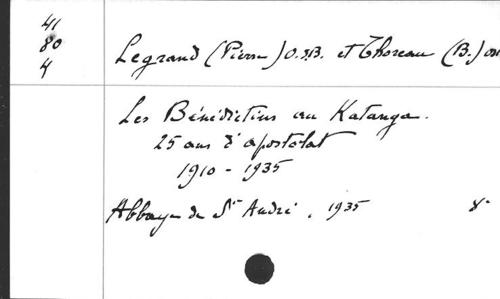 41
80
4
Legrand (Pierre) O.S.B. et Thoreau (B.) OS
Les Bénédictins au Katanga.
25 ans d'apostolat
1910 - 1935
Abbaye de St André, 1935 8°